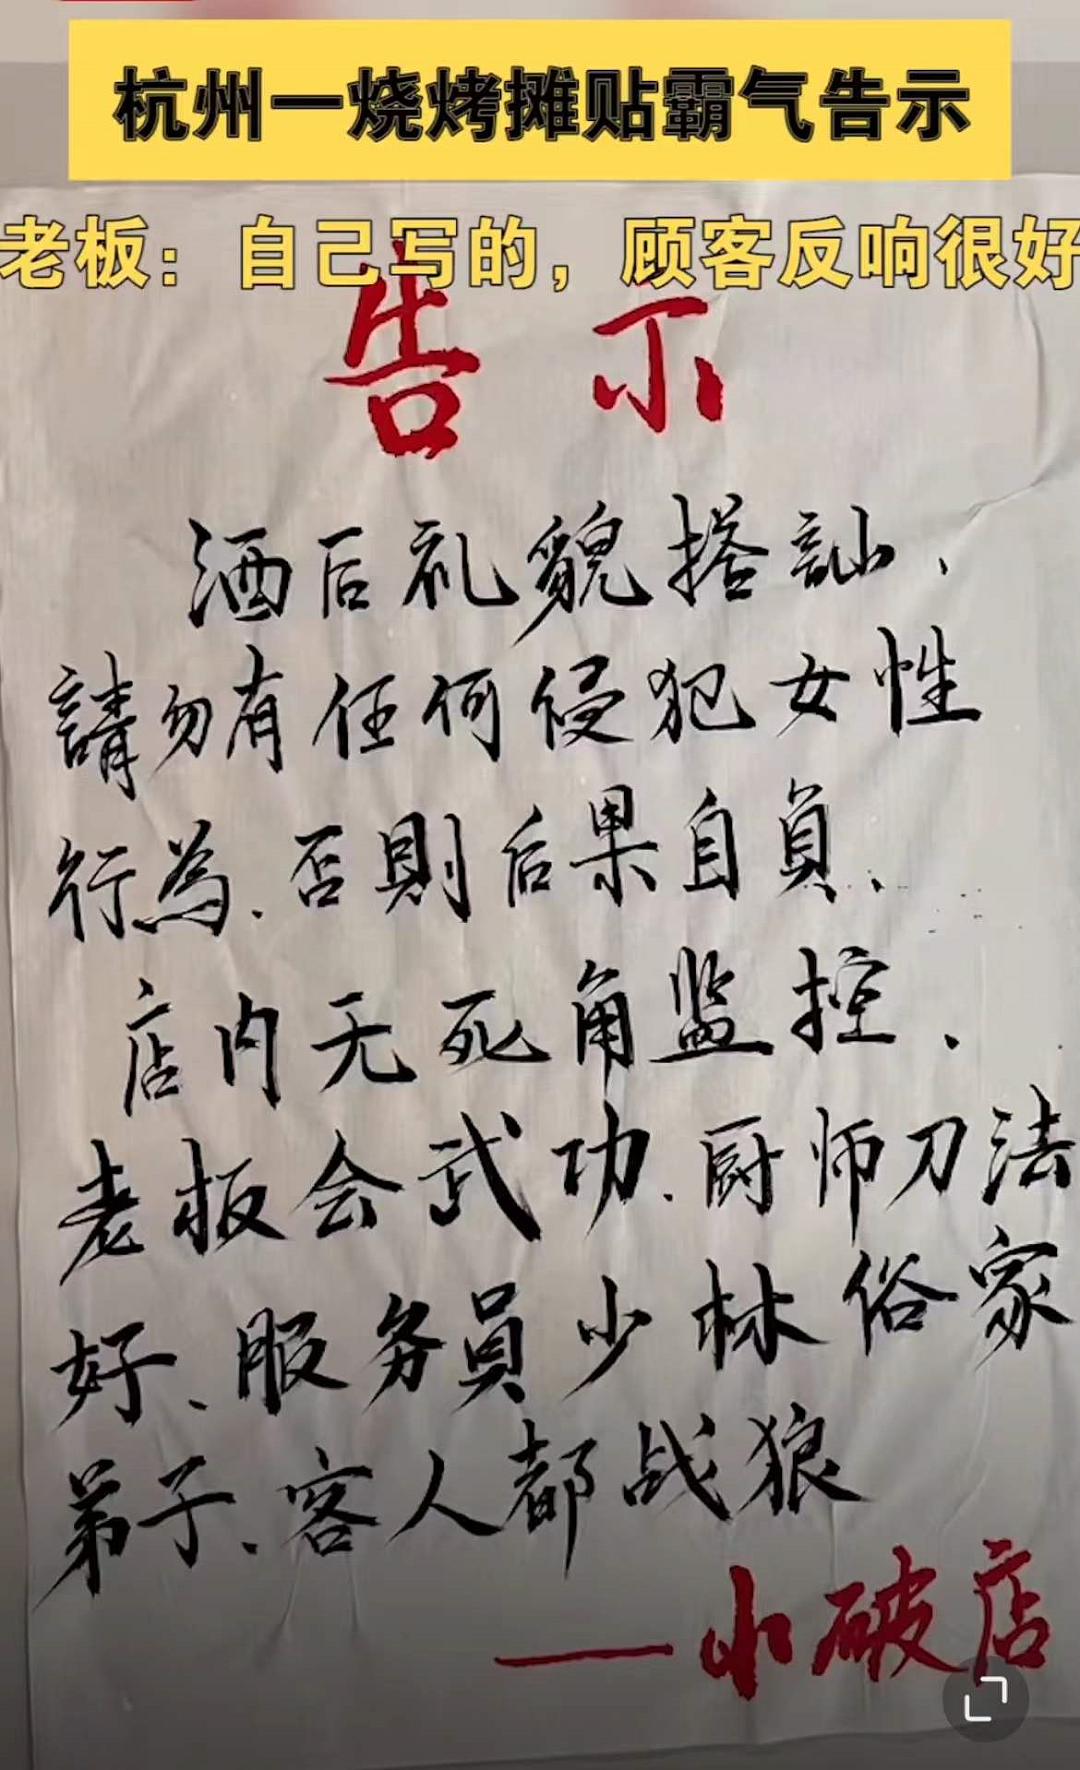 杭州一烧烤摊贴霸气告示
老板：自己写的，顾客反响很好
告示
酒后礼貌搭訕、
請勿有任何侵犯女性
行為、否則后果自負、
店内无死角监控、
老板会武功、厨师刀法
好、服务員少林俗家
弟子、客人都战狼
——小破店